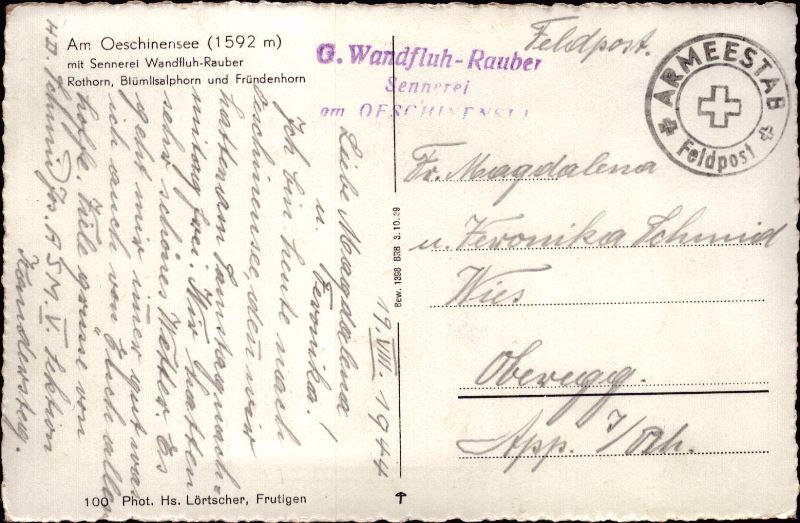 Am Oeschinensee (1592 m)
mit Sennerei Wandfluh-Rauber
Rothorn, Blümlisalphorn und Fründenhorn
G. Wandfluh-Rauber
Sennerei
am OESCHINENSEE
Feldpost.
ARMEESTAB
Feldpost
19. VIII. 1944
Liebe Magdalena
u. Veronika!
Ich bin heute nach
Oeschinensee, den wir
hatten am Samstagnach-
mittag frei. Wir hatten
sehr schönes Wetter Es
geht mir immer gut was
ich auch von Euch allen
hoffe. Viele grüsse von
Schmid Jos.
Kandersteg.
Fr. Magdalena
u. Veronika Schmid
Wies
Oberegg.
App. I/Rh.
Bew. 1398 BRB 3.10.39
100 Phot. Hs. Lörtscher, Frutigen